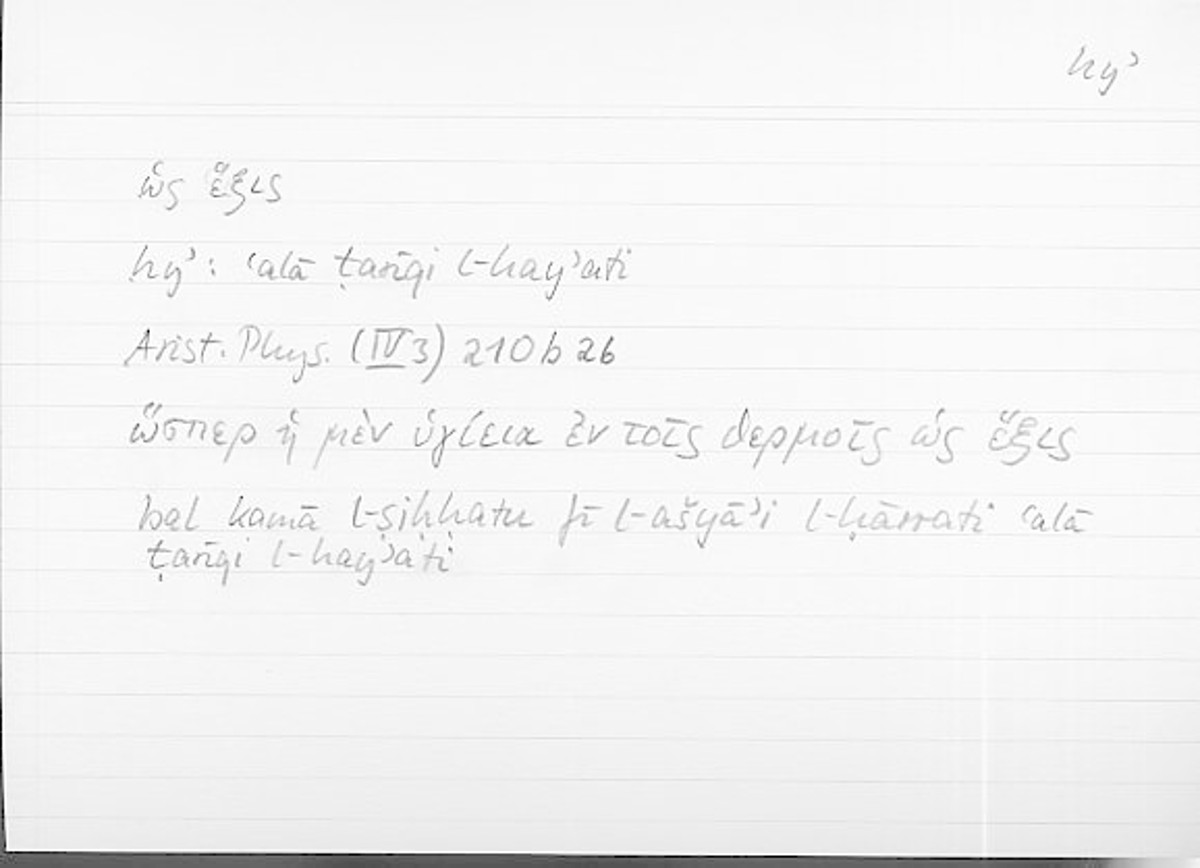 hyʾ
ὡς ἕξις
hyʾ: ʿalā ṭarīqi l-hayʾati
Arist. Phys. (IV 3) 210 b 26
ὥσπερ ἡ μὲν ὑγίεια ἐν τοῖς θερμοῖς ὡς ἕξις
bal kamā l-ṣiḥḥatu fī l-ašyāʾi l-ḥārrati ʿalā
ṭarīqi l-hayʾati